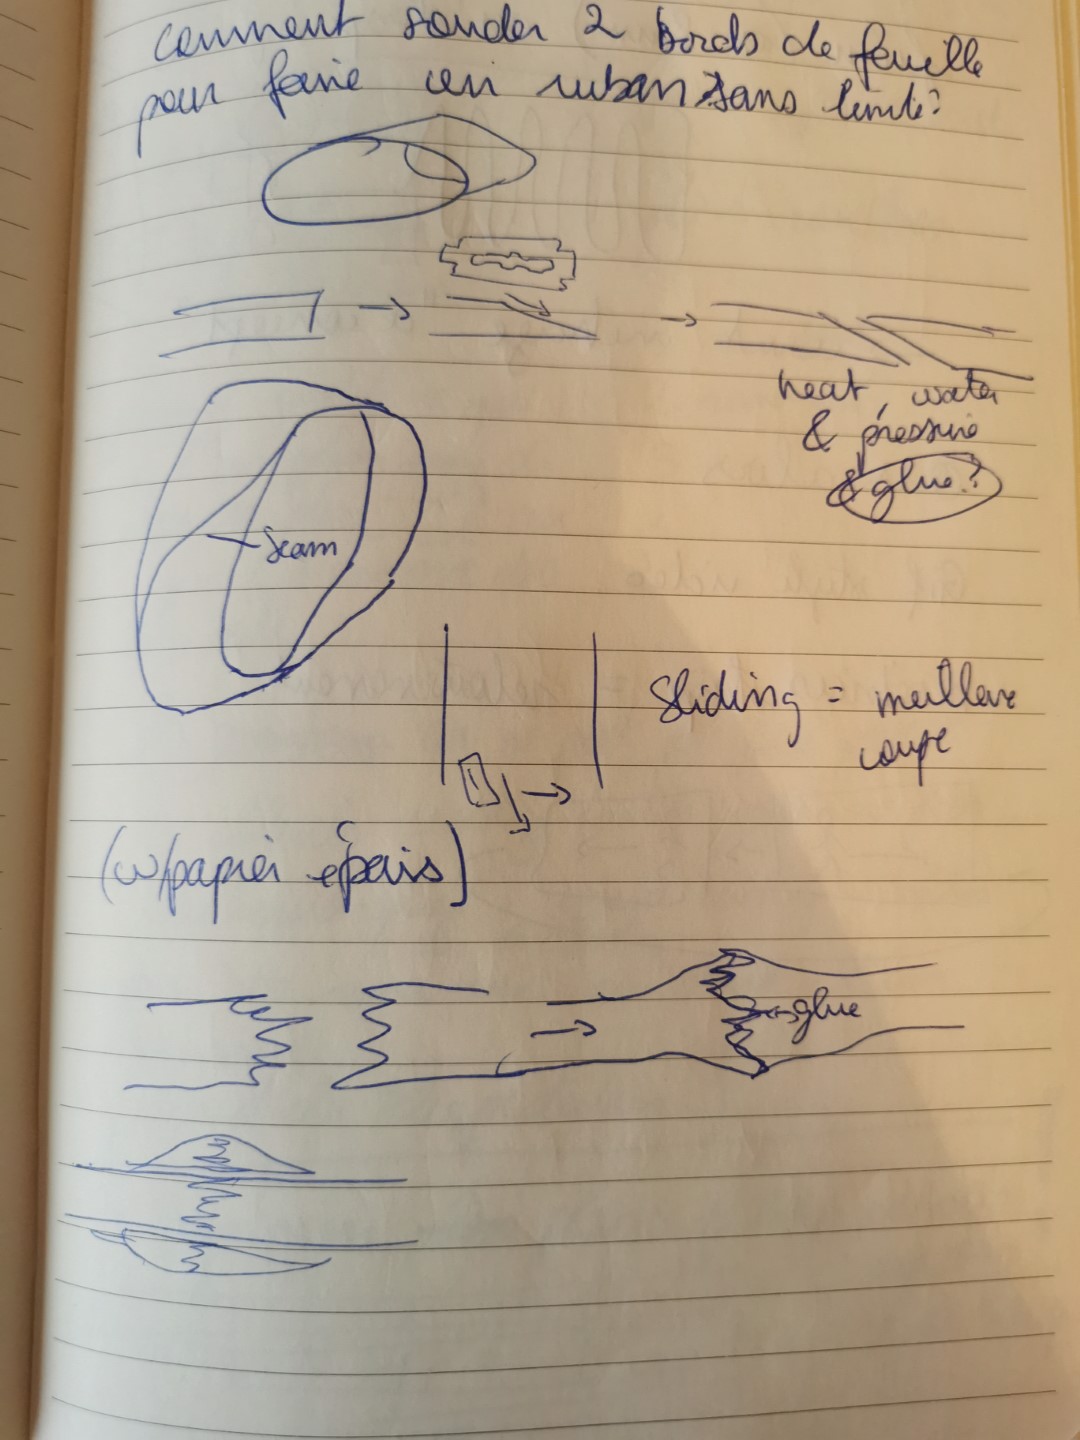 Comment souder 2 bords de feuille
pour faire un ruban sans limite?
heat, water
& pressure
& glue?
Seam
Sliding = meilleure
coupe
(w/papier épais)
glue